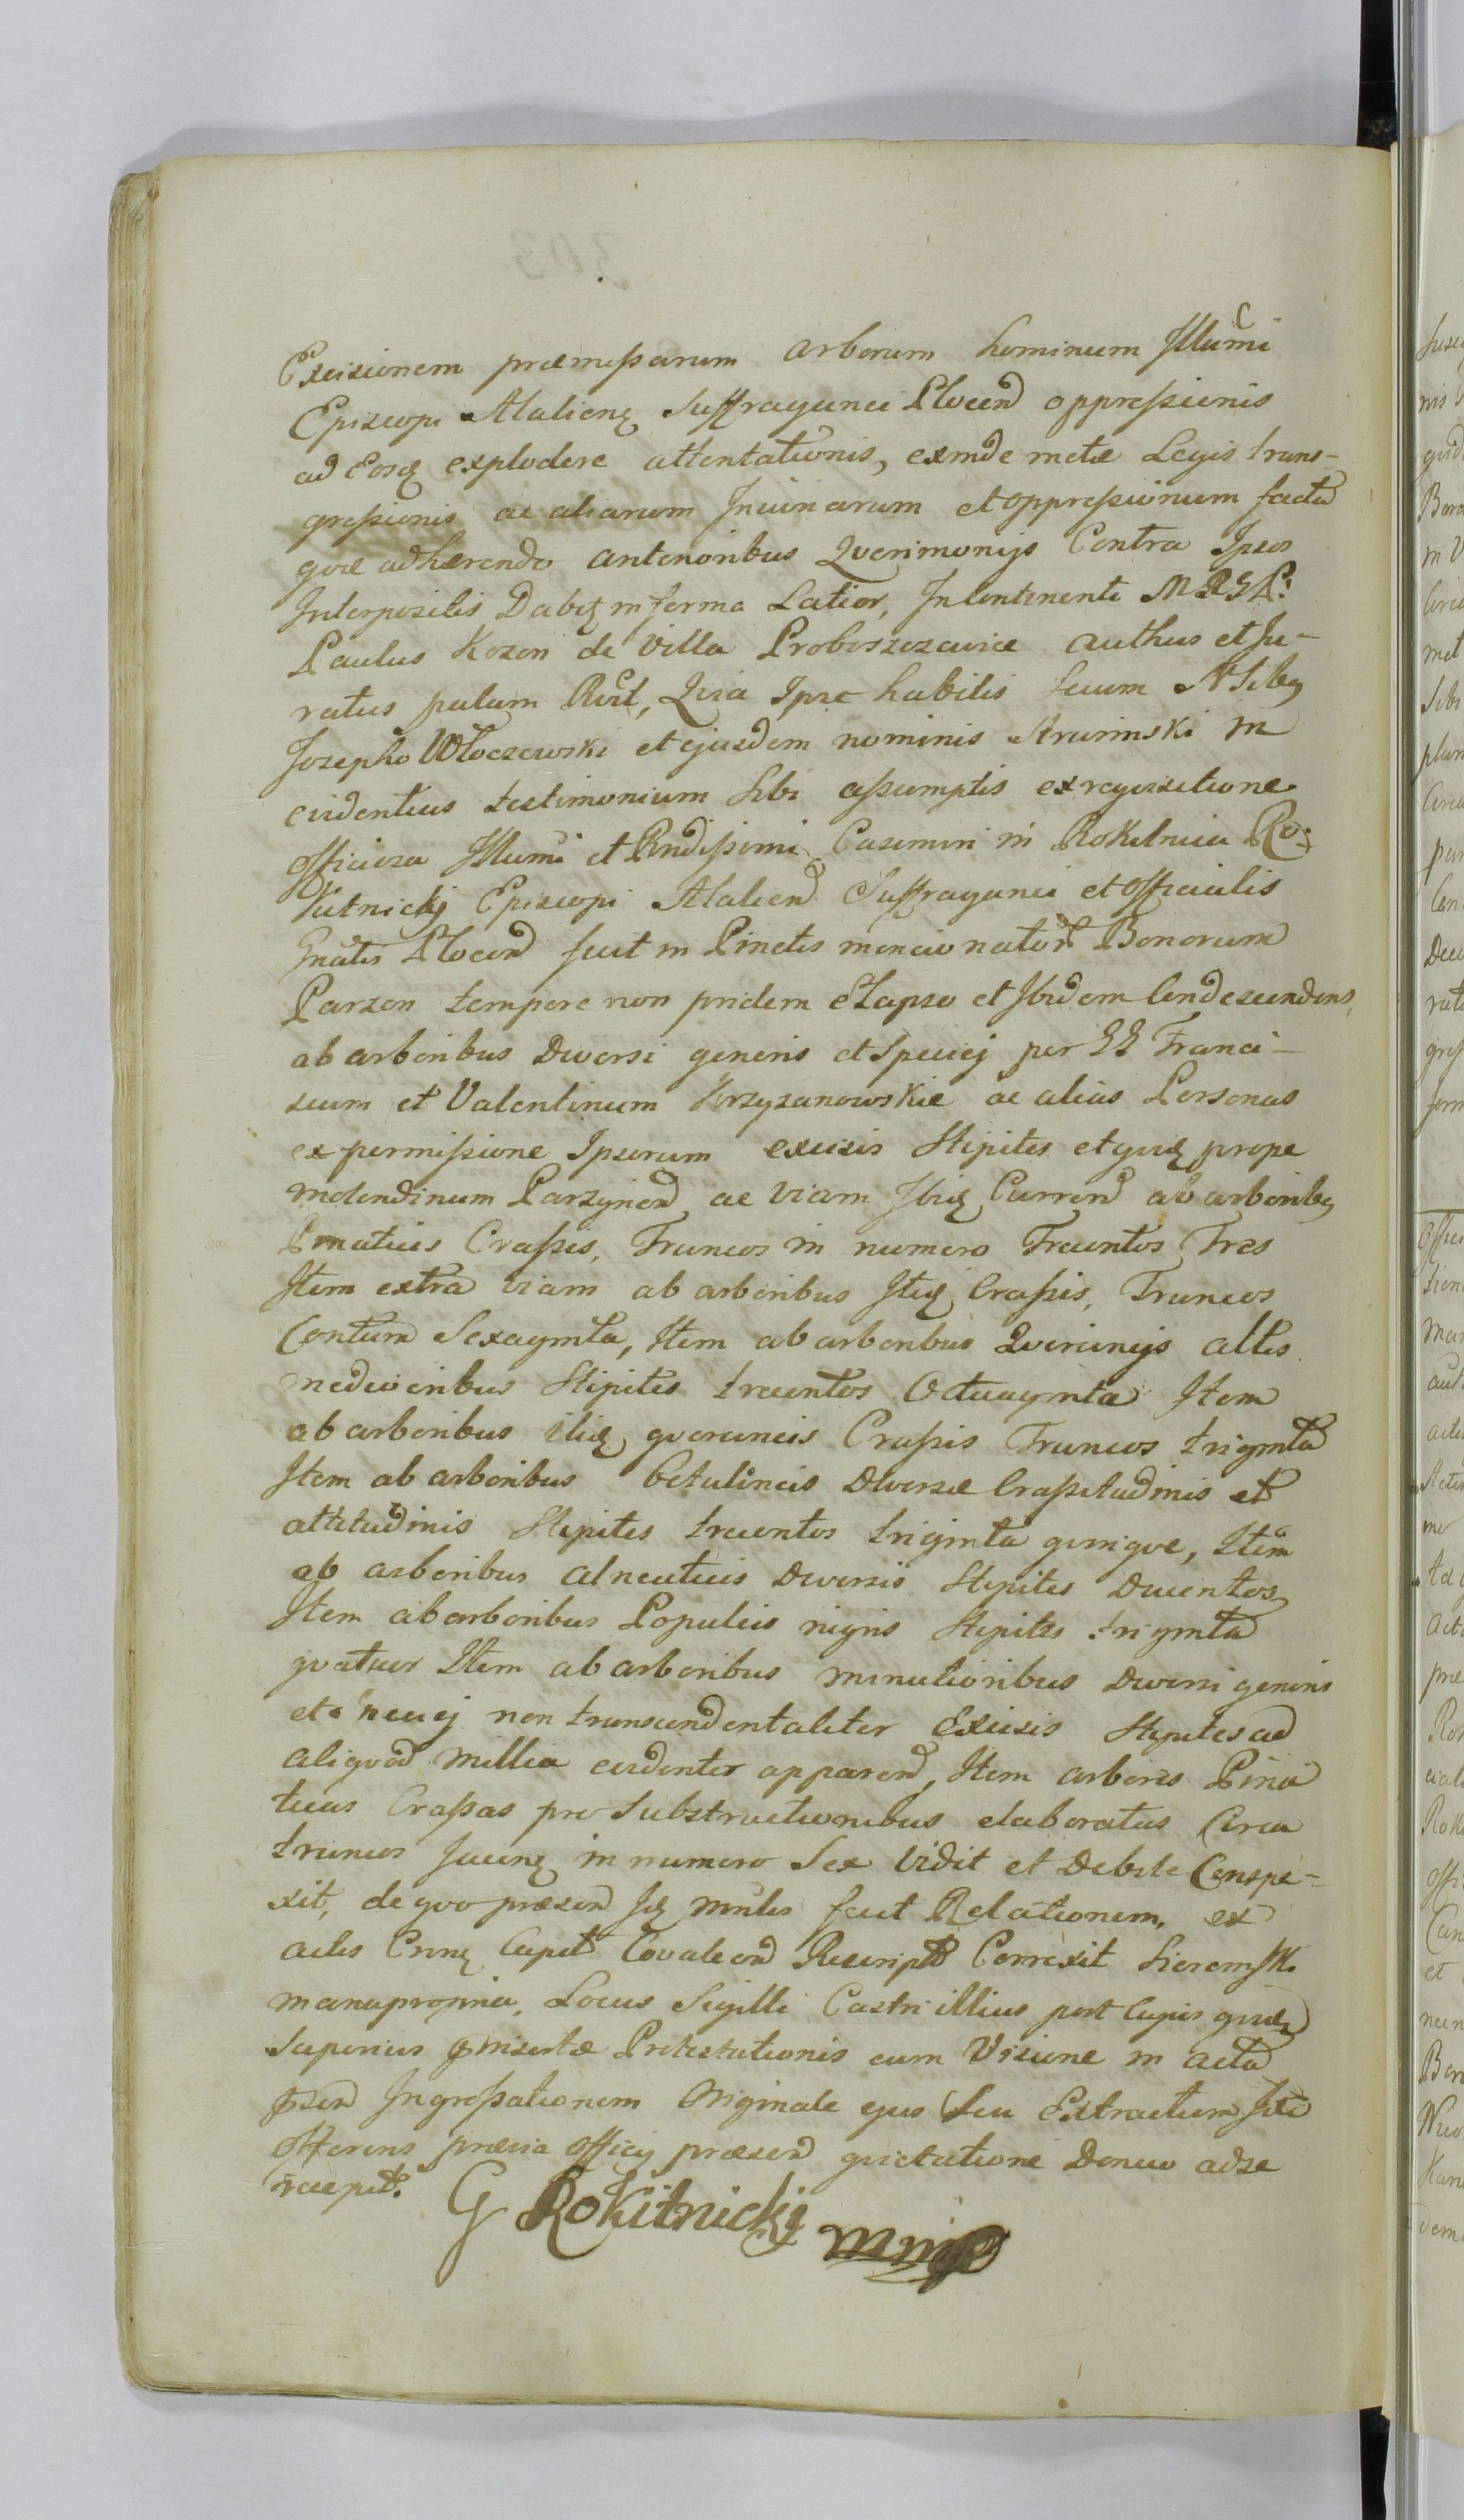 Excisionem præmissarum arborum hominum Illumi
Episcopi Aталienę Suffraganei Plocen oppressionis
ad Eosq explodere attentationis, exinde metæ Legis trans-
gressionis ac aliarum Iniuriarum et oppressionum facta
quæ adhærendo anterioribus Querimonijs Contra Ipsos
Interpositis Dabit in forma Latior, In Continenti MRGP:
Paulus Kozon de Villa Proboszczewice authus et Ju-
ratus palam Rcit, Quia Ipse habitis secum NNbq
Josepho Włoczewski et ejusdem nominis Strusinski in
evidentius testimonium sibi assumptis ex requisitione
officiosa Illumi et Rndissimi Casimiri in Rokitnica Ro:
kutnickij Episcopi Atalien Suffraganei et Officialis
Gnalis Plocen fuit in Pinetis mencionator Bonorum
Parzen tempore non pridem elapso et Ibidem Condescendens,
ab arboribus Diversi generis et Speciej per GG Franci-
scum et Valentinum Krzyzanowskie ac alias Personas
ex permissione Ipsorum excisis Stipites et quid prope
molendinum Parzynen ac viam Ibiq Curren ab arboribq
Pinaticis Crassis, Truncos in numero Trecentos Tres
Item extra viam ab arboribus Itiq Crassis, Truncos
Centum Sexaginta, Item ab arboribus Quercinejs altis
mediocribus Stipites trecentos Octuaginta Item
ab arboribus itiq quercineis Crassis Truncos triginta
Item ab arboribus betulineis Diversæ Crassitudinis et
altitudinis Stipites trecentos triginta quinque, Item
ab arboribus alneaticis Diversis Stipites Ducentos,
Item ab arboribus Populeis nigris Stipites triginta
quatuor Item ab arboribus minutioribus Diversi generis
et speciej non transcendentaliter Excisis Stipites ad
aliquod millia evidenter apparen, Item arbores Pina
ticas Crassas pro Substructionibus elaboratas Circa
truncos Jacenę in numero Sex Vidit et Debite Conspe-
xit, de quo præsen Jq mnlis fecit Relationem, ex
actis Crinę Capit Covaleon Rescript Correxit
manupropria, Locus Sigilli Castri illius post Cujus quid
Superius pinsertæ Protestationis cum Visione in acta
psen Ingrossationem Originale ejus Seu Extractum Ide
Offerens prævia Officij præsen quietatione Denuo ad se
recepit.
G Rokitnickij mmp